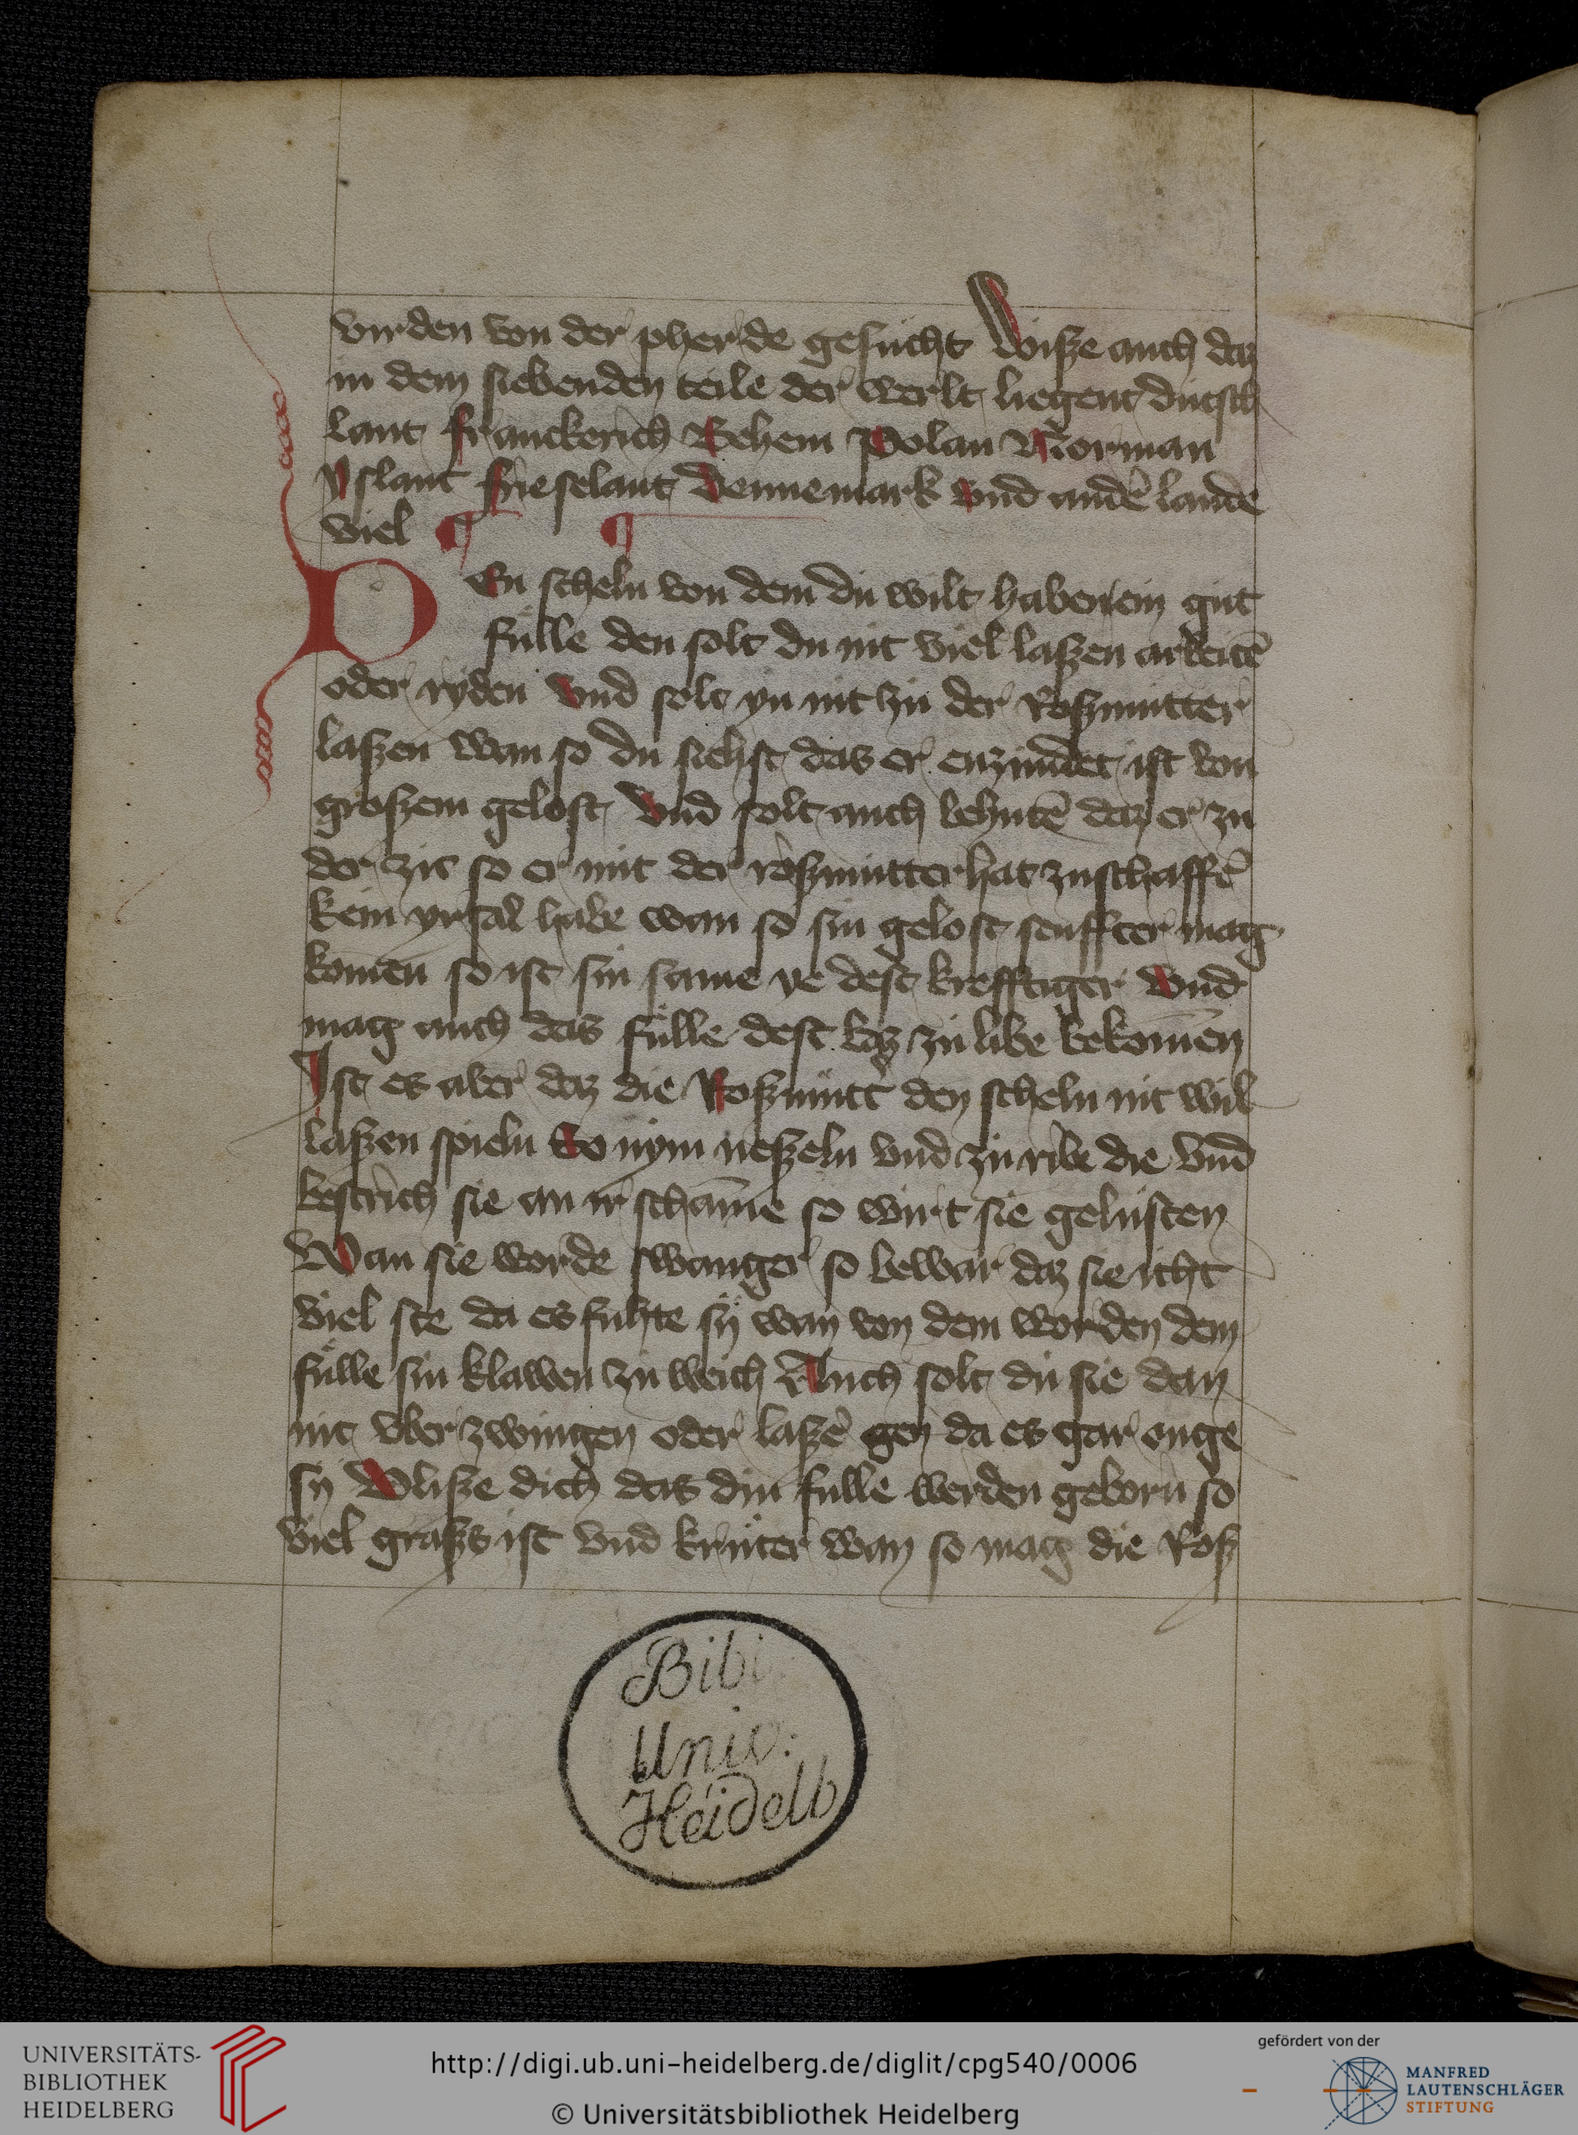 vinden von der pherde gesucht Wisze auch daz
in dem siebenden teile der werlt liegent dutsch
lant franckerich Behem Polan Norman
yslant frieselant Dennemark Vnd andē lande
viel
DEn scheln von dem du wilt haben ein gut
fülle den solt du nit viel laszen arbeitē
oder ryden Vnd solt yn nit zu der Roszmutter
laszen wan so du siehst das er enzundet ist von
groszem gelost Vnd solt auch behutē daz er zu
der zit so er mit der roszmutter hat zu schaffē
kein yrsal habe wan so sin gelost senffter mag
komēn so ist sin same ye dest krefftiger Vnd
mag auch das fülle dest baz zu libe bekomēn
Ist es aber daz die Roszmutt den scheln nit wil
laszen spieln So nym neszeln vnd zu ribe die vnd
bestrich sie an ir schāme so wirt sie gelusten
Wan sie worde swanger so bewar daz sie icht
viel ste da es fuhte sÿ wan von dem worden dem
fülle sin klawen zu weich Auch solt du sie dan
nit vber zwingen oder laszē gen da es gar enge
sÿ Vlisze dich das din fulle werden geborn so
viel grasz ist vnd kruter wan so mag die Rosz
Bibl
Univ:
Heidelb
UNIVERSITÄTS-
BIBLIOTHEK
HEIDELBERG
http://digi.ub.uni-heidelberg.de/diglit/cpg540/0006
© Universitätsbibliothek Heidelberg
gefördert von der
MANFRED
LAUTENSCHLÄGER
STIFTUNG